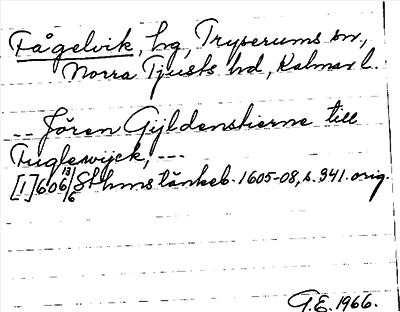 Fågelvik, hg, Tryserums sn,
Norra Tjusts hd, Kalmar l.
-- Jören Gyldenstierne till
Fuglewijck, ---
[1]606 13/6 Sthms tänkeb. 1605-08, s. 341. orig.
G.E. 1966.